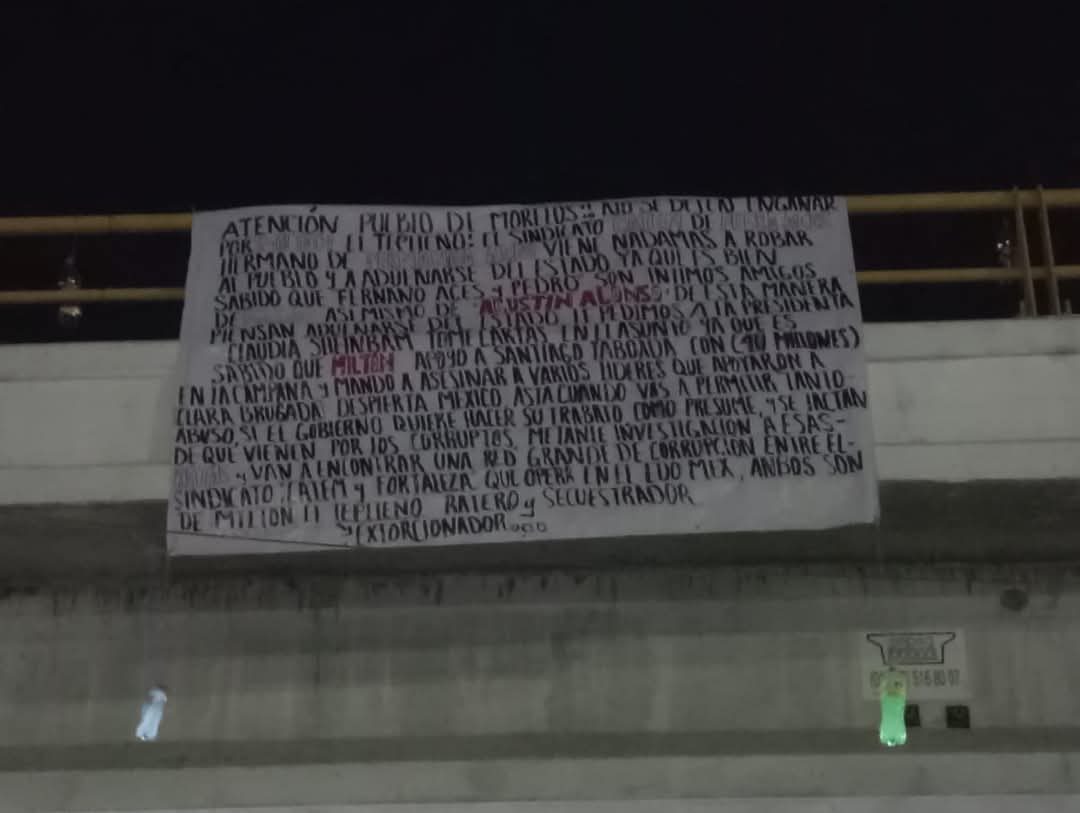 ATENCIÓN PUEBLO DE MORELOS:: NO SE DEJEN ENGAÑAR
POR EL TEPLLENO: EL SINDICATO DE
HERMANO DE VIENE NADAMAS A ROBAR
AL PUEBLO Y A ADUEÑARSE DEL ESTADO YA QUE ES BIEN
SABIDO QUE FERNANO ACES Y PEDRO SON INTIMOS AMIGOS
DE ASI MISMO DE AGUSTIN ALONSO DE ESTA MANERA
PIENSAN ADUEÑARSE DEL ESTADO LE PEDIMOS A LA PRESIDENTA
CLAUDIA SHEINBAM TOME CARTAS EN EL ASUNTO YA QUE ES
SABIDO QUE MILTON APOYO A SANTIAGO TABOADA CON (40 MILLONES)
EN LA CAMPAÑA Y MANDO A ASESINAR A VARIOS LIDERES QUE APOYARON A
CLARA BRUGADA, DESPIERTA MEXICO, ASTA CUANDO VAS A PERMITIR TANTO
ABUSO, SI EL GOBIERNO QUIERE HACER SU TRABAJO COMO PRESUME, Y SE JACTAN
DE QUE VIENEN POR LOS CORRUPTOS, METANLE INVESTIGACION A ESAS-
Y VAN A ENCONTRAR UNA RED GRANDE DE CORRUPCION ENTRE EL-
SINDICATO, CATEM Y FORTALEZA QUE OPERA EN EL EDO MEX, ANBOS SON
DE MILTON EL TEPLLENO RATERO y SECUESTRADOR
y EXTORCIONADOR...
516 80 07